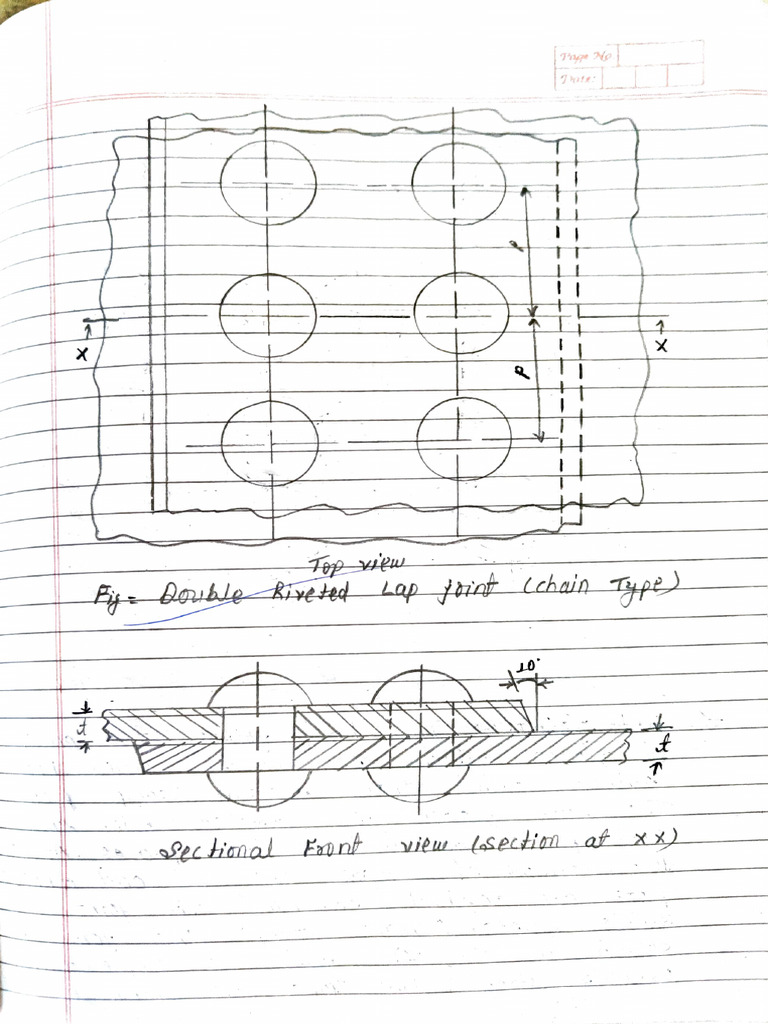 Page No
Date:
P
X
X
P
Top view
Fig= Double Riveted Lap joint (chain Type)
10°
t
t
Sectional Front view (section at xx)